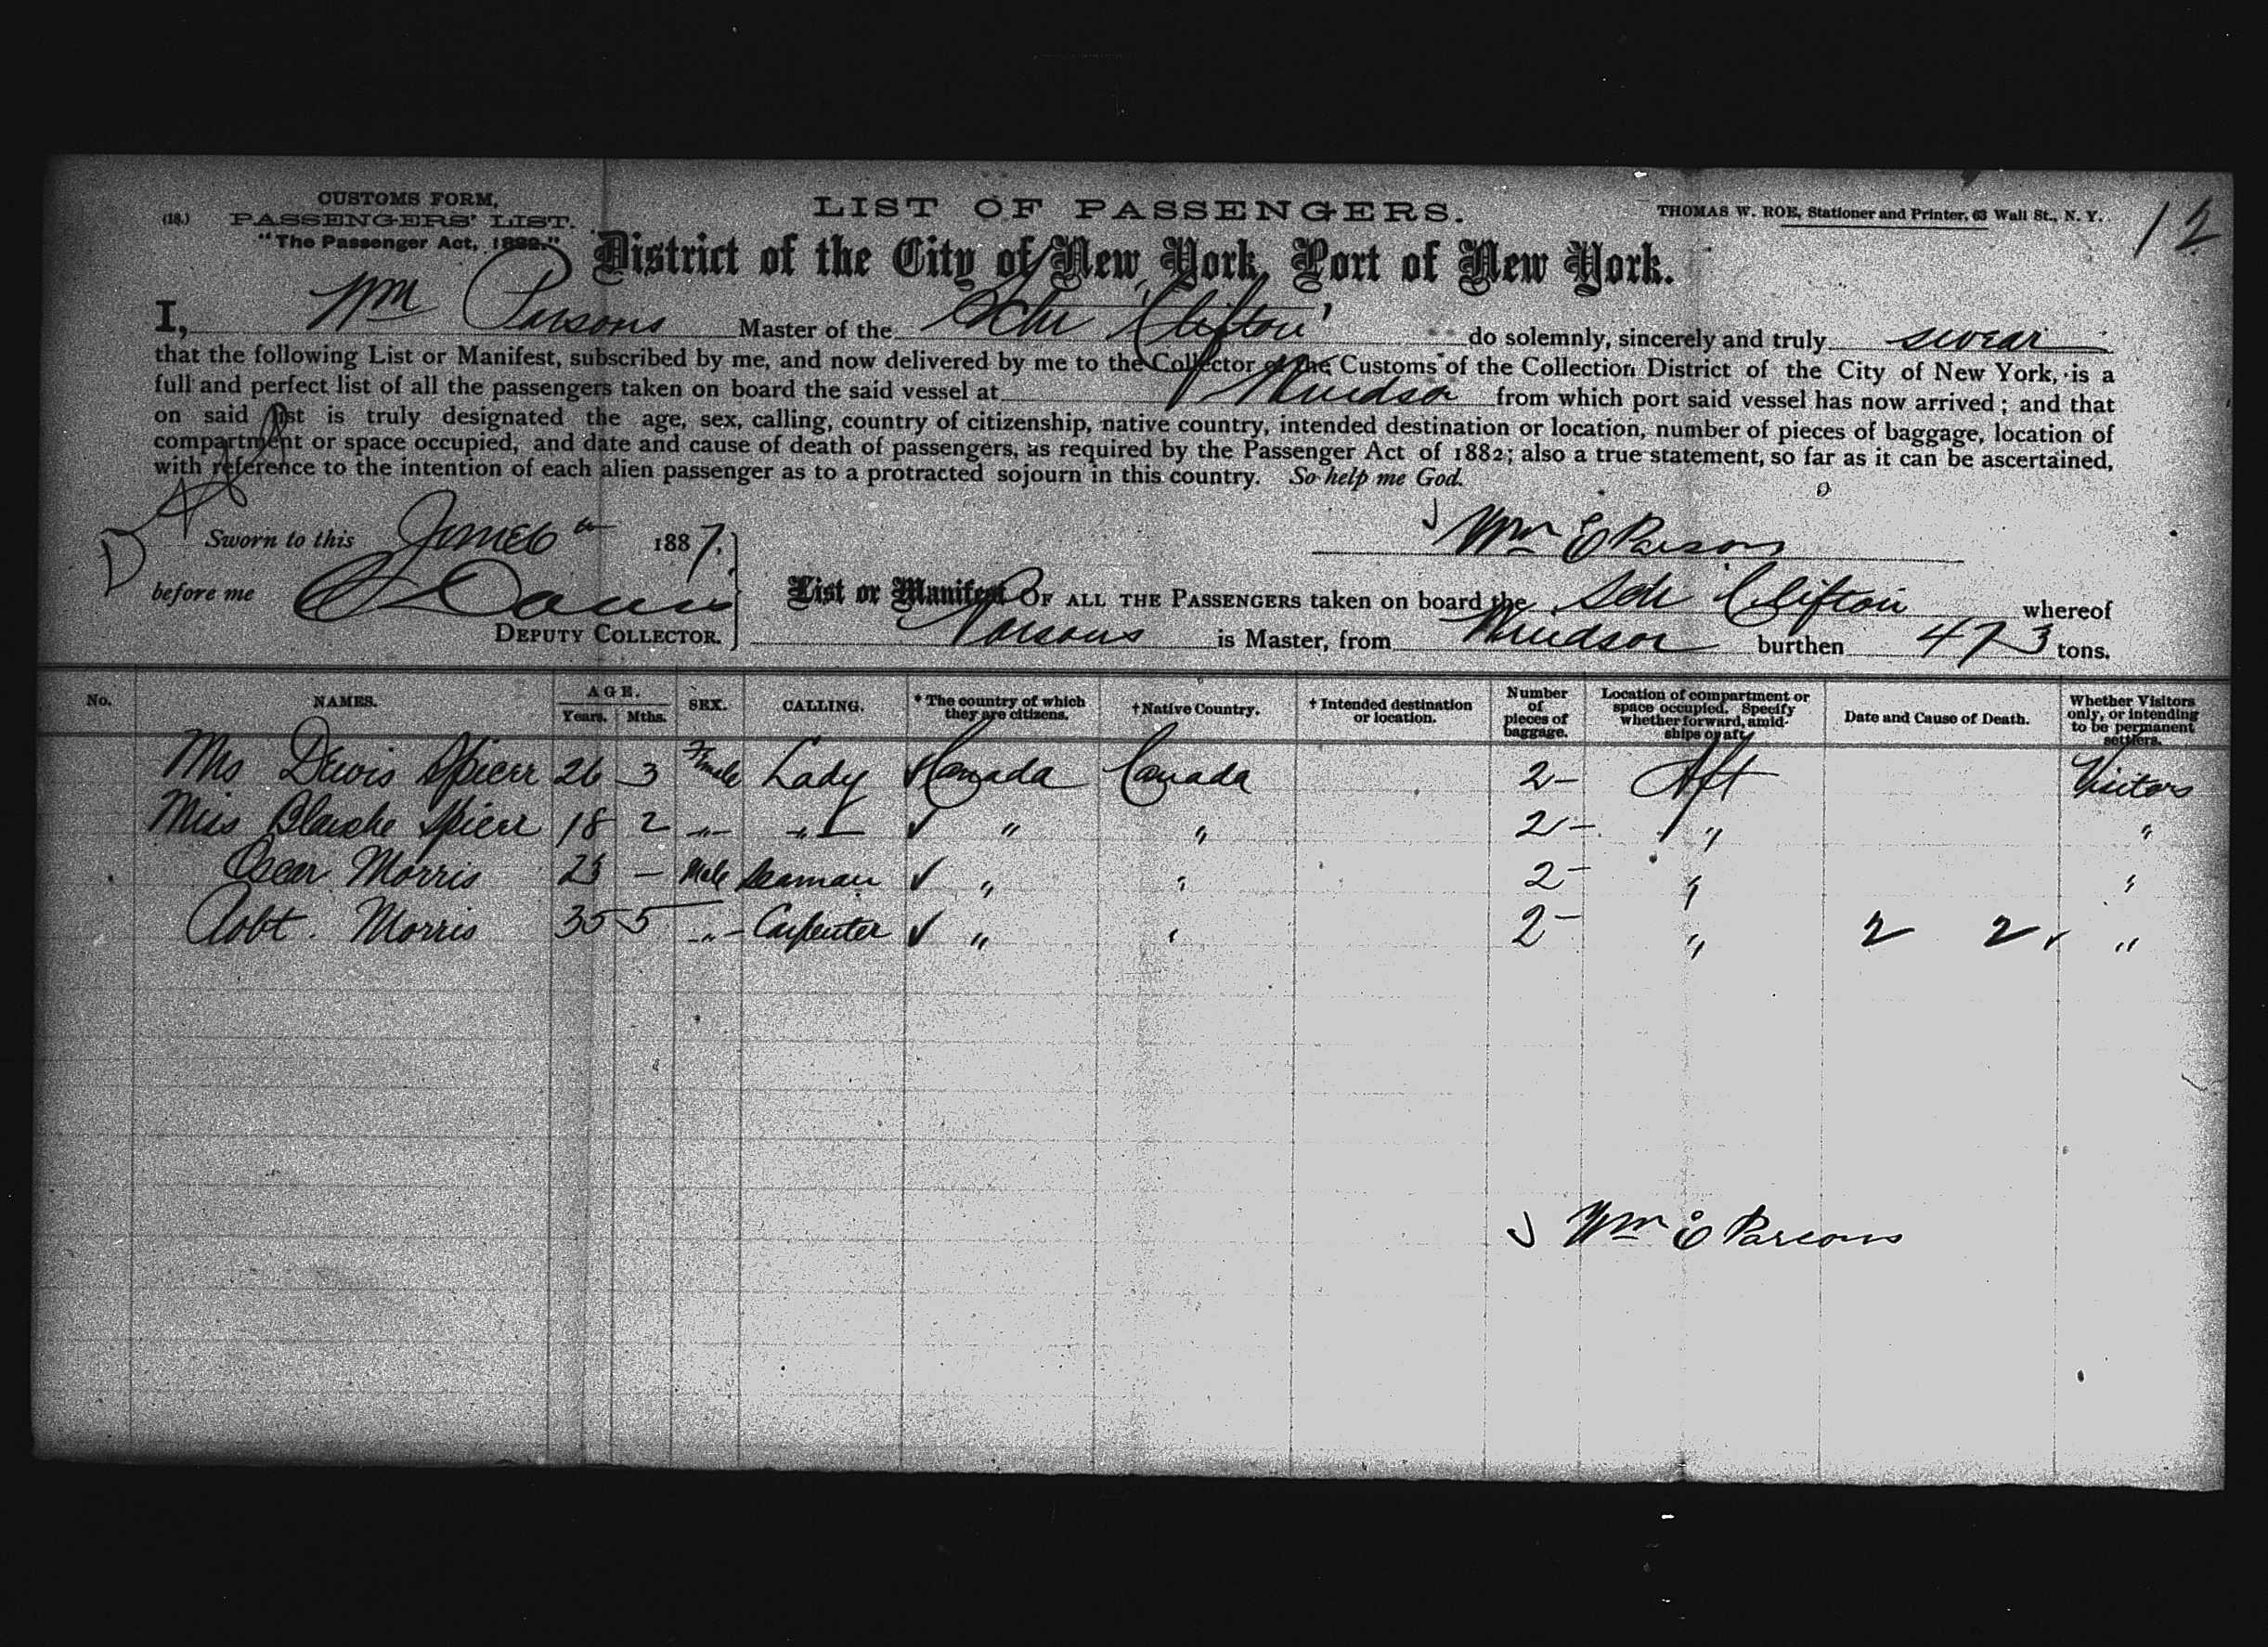 CUSTOMS FORM,
(18.) PASSENGERS' LIST.
"The Passenger Act, 1882."
LIST OF PASSENGERS.
THOMAS W. ROE, Stationer and Printer, 63 Wall St., N. Y.
12
District of the City of New York, Port of New York.
I, Wm Parsons Master of the Schr Clifton do solemnly, sincerely and truly swear
that the following List or Manifest, subscribed by me, and now delivered by me to the Collector of the Customs of the Collection District of the City of New York, is a
full and perfect list of all the passengers taken on board the said vessel at Windsor from which port said vessel has now arrived; and that
on said list is truly designated the age, sex, calling, country of citizenship, native country, intended destination or location, number of pieces of baggage, location of
compartment or space occupied, and date and cause of death of passengers, as required by the Passenger Act of 1882; also a true statement, so far as it can be ascertained,
with reference to the intention of each alien passenger as to a protracted sojourn in this country. So help me God.
Sworn to this June 6th 1887.
Wm E Parsons
before me
DEPUTY COLLECTOR.
List or Manifest OF ALL THE PASSENGERS taken on board the Schr Clifton whereof
Parsons is Master, from Windsor burthen 473 tons.
No. NAMES. AGE. Years. Mths. SEX. CALLING. * The country of which they are citizens. † Native Country. † Intended destination or location. Number of pieces of baggage. Location of compartment or space occupied. Specify whether forward, amidships or aft. Date and Cause of Death. Whether Visitors only, or intending to be permanent settlers.
Mrs Spicer 26 3 Female Lady Canada Canada 2 - Aft Visitors
Miss Blanche Spicer 18 2 " " " " 2 - " "
Oscar Morris 23 - Male Seaman " " 2 - " "
Robt. Morris 35 5 " Carpenter " " 2 - " 2 2 "
Wm E Parsons